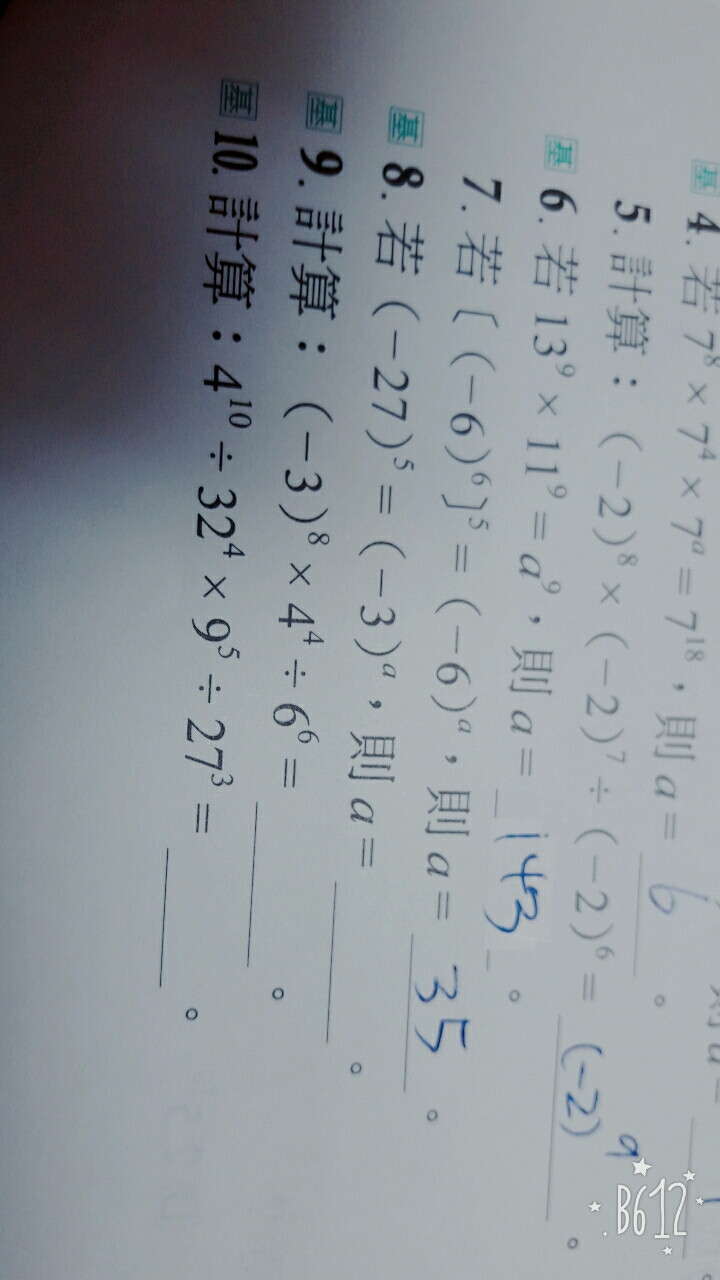 基 4. 若 7⁸ × 7⁴ × 7ᵃ = 7¹⁸，則 a = 6 。
5. 計算：(－2)⁸ × (－2)⁷ ÷ (－2)⁶ = (-2)⁹ 。
基 6. 若 13⁹ × 11⁹ = a⁹，則 a = 143 。
7. 若〔(－6)⁶〕⁵ = (－6)ᵃ，則 a = 35 。
基 8. 若 (－27)⁵ = (－3)ᵃ，則 a = 。
基 9. 計算：(－3)⁸ × 4⁴ ÷ 6⁶ = 。
基 10. 計算：4¹⁰ ÷ 32⁴ × 9⁵ ÷ 27³ = 。
B612